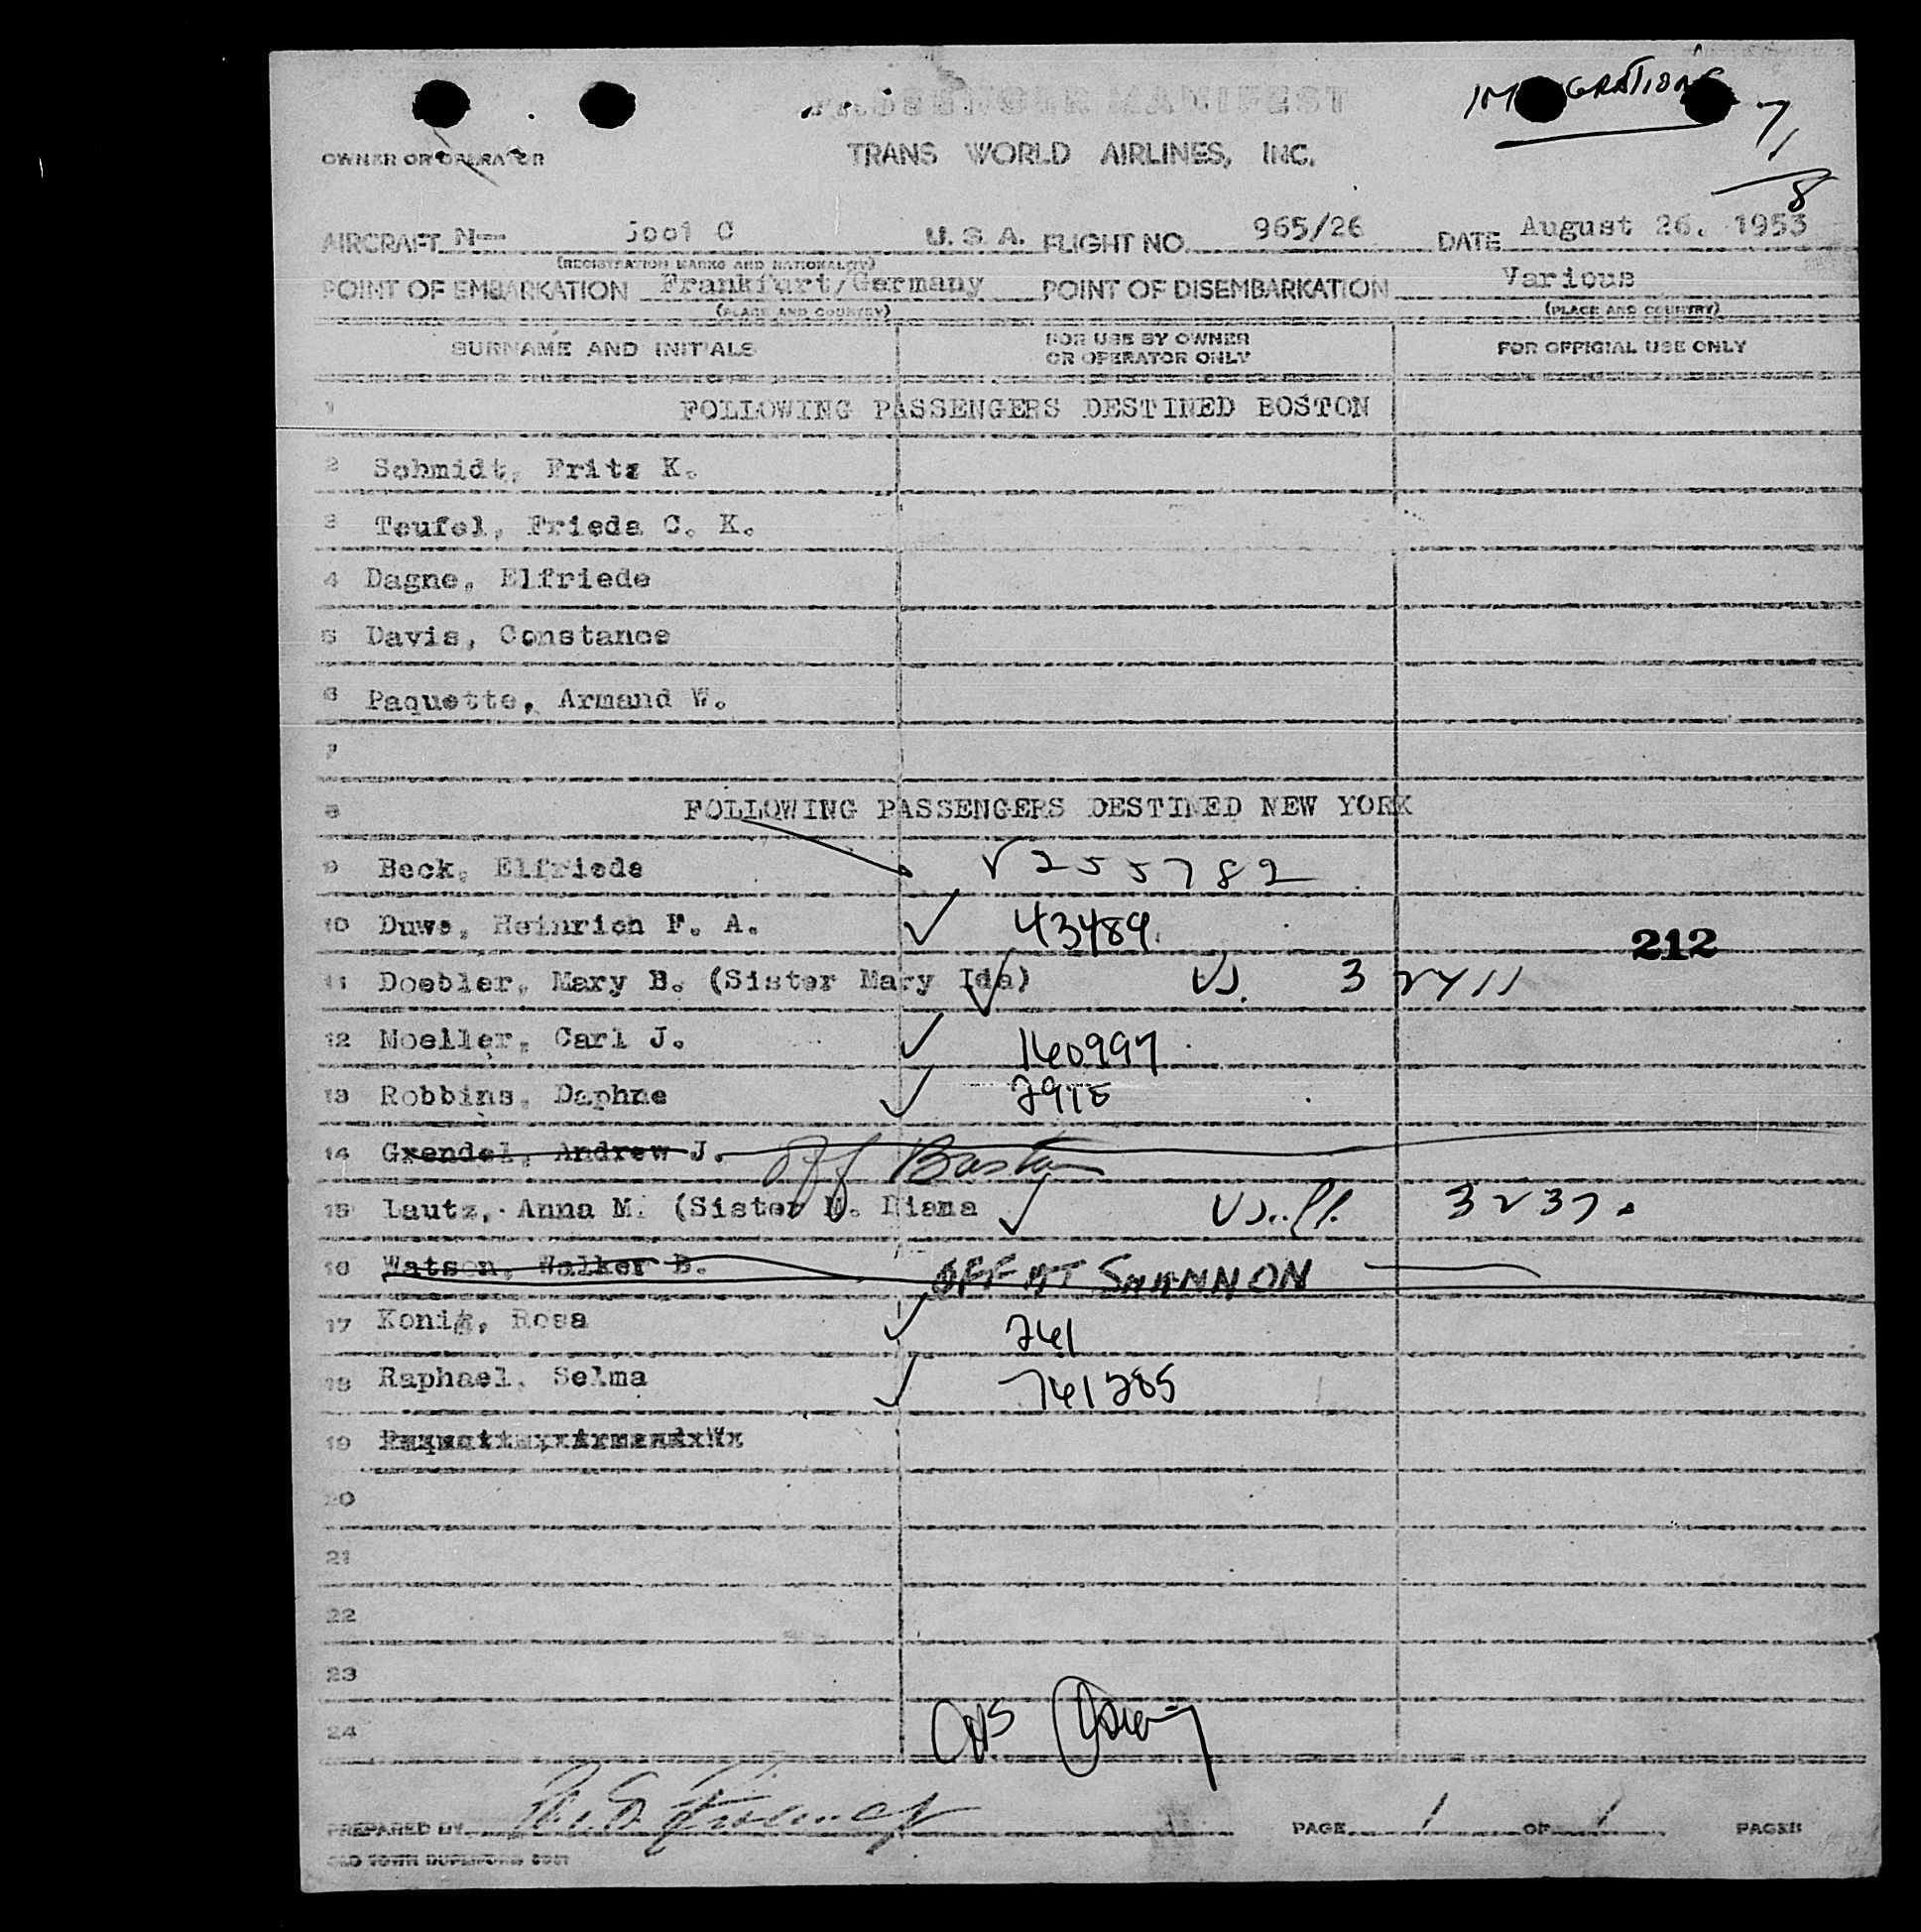 PASSENGER MANIFEST
IMMIGRATION
7/8
OWNER OR OPERATOR TRANS WORLD AIRLINES, INC.
AIRCRAFT N-- C U. S. A. FLIGHT NO. 965/26 DATE August 26, 1953
(REGISTRATION MARKS AND NATIONALITY)
POINT OF EMBARKATION Frankfurt/Germany POINT OF DISEMBARKATION Various
(PLACE AND COUNTRY) (PLACE AND COUNTRY)
SURNAME AND INITIALS FOR USE BY OWNER OR OPERATOR ONLY FOR OFFICIAL USE ONLY
1 FOLLOWING PASSENGERS DESTINED BOSTON
2 Schmidt, Fritz K.
3 Teufel, Frieda C. K.
4 Dagne, Elfriede
5 Davis, Constance
6 Paquette, Armand W.
7
8 FOLLOWING PASSENGERS DESTINED NEW YORK
9 Beck, Elfriede √ 255782
10 Duwe, Heinrich F. A. ✓ 43489
212
11 Doebler, Mary B. (Sister Mary Ida) ✓ US. 3 2411
12 Moeller, Carl J. ✓ 160997
13 Robbins, Daphne ✓
14 Grendel, Andrew J. Off Boston
15 Lautz, Anna M. (Sister M. Diana ✓ 3237
16 Watson, Walker B. OFF AT SHANNON
17 Konig, Rosa ✓ 261
18 Raphael, Selma ✓ 761285
19
20
21
22
23
24
PREPARED BY PAGE 1 OF 1 PAGES